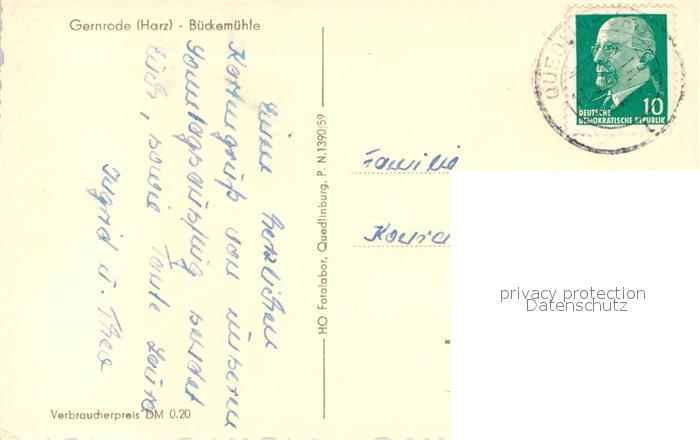 Gernrode (Harz) - Bückemühle
Einen herzlichen
Kartengruß von unserem
Sonntagsausflug sendet
Euch, sowie Tante Laura
Ingrid u. Theo
Verbraucherpreis DM 0.20
HO Fotolabor, Quedlinburg, P. N.1390/59
QUED
10
DEUTSCHE
DEMOKRATISCHE REPUBLIK
Familie
Konra
privacy protection
Datenschutz